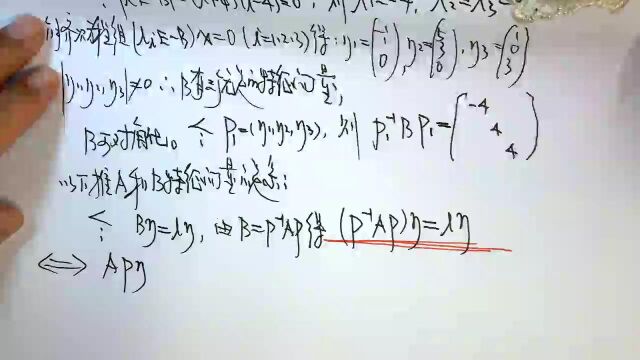 : |λE-B|=(λ+4)(λ-4)²=0, 则 λ₁=-4, λ₂=λ₃=
解齐次方程组(λᵢE-B)x=0 (i=1,2,3)得: η₁=(-1 1 0), η₂=( 3 0), η₃=(1 0 3)
|η₁,η₂,η₃|≠0 ∴B有三个线性无关特征向量;
B可对角化。令: P₁=(η₁,η₂,η₃), 则 P₁⁻¹BP₁=(-4 4 4)
以下推A和B特征向量关系:
令: Bη=λη, 由B=P⁻¹AP得 (P⁻¹AP)η=λη
⟺ APη